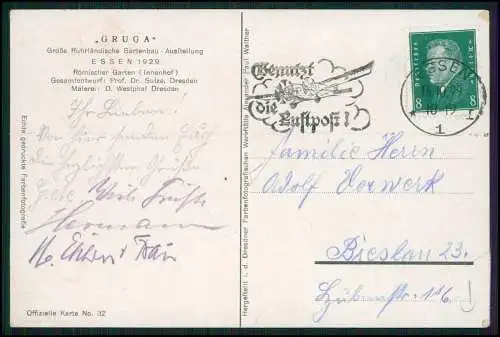 „GRUGA“
Große Ruhrländische Gartenbau-Ausstellung
ESSEN 1929
Römischer Garten (Innenhof)
Gesamtentwurf: Prof. Dr. Sulze, Dresden
Malerei: D. Westphal Dresden
Ihr Lieben!
Von hier senden Euch
die herzlichsten Grüße
Viele Grüße
Hermann
u. Frau
Echte gedruckte Farbenfotografie
Offizielle Karte No. 32
Hergestellt i. d. Dresdner Farbenfotografischen Werkstätte Alexander Paul Walther
Benutzt
die
Luftpost!
DEUTSCHES REICH
8 8
ESSEN
1
Familie Herrn
Adolf Vorwerk
Breslau 23.